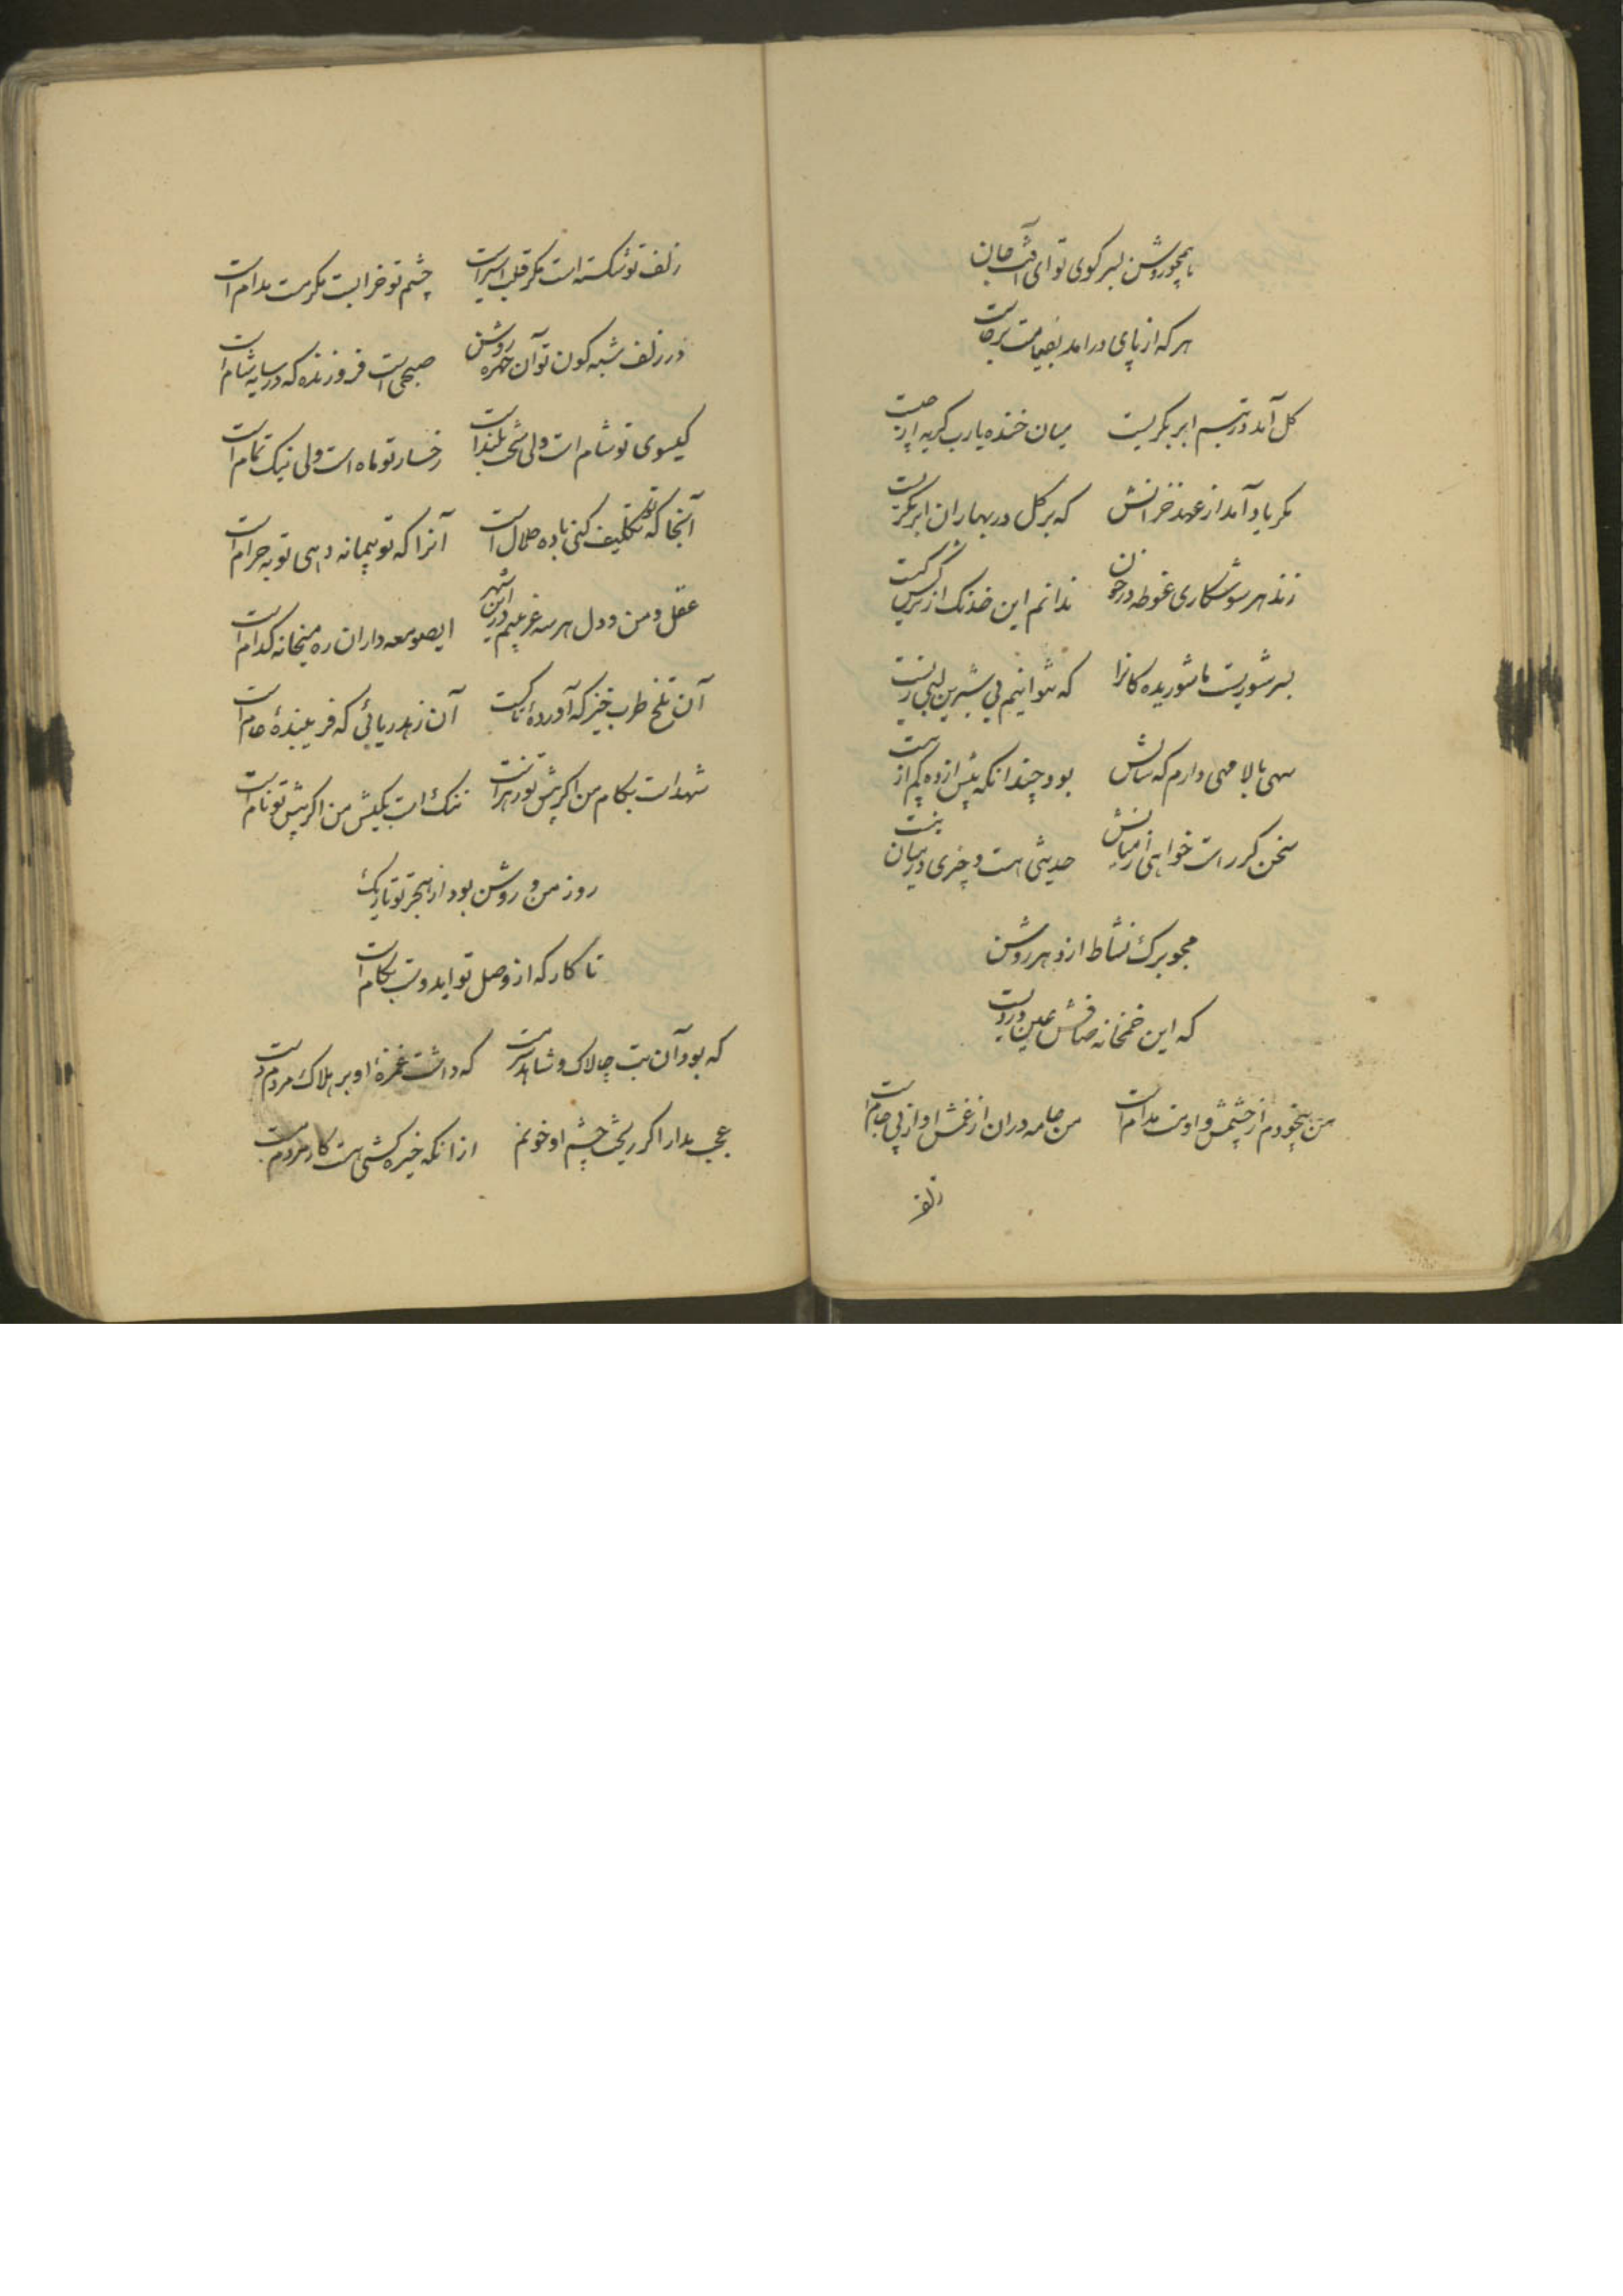 همچو روشن بسر کوی تو ای آفت جان
هر که از پای درآمد بقیامت برخاست
کل آمد در تبسم ابر بکریست میان خنده یارب کریه از چیست
مکر یاد آمد از عهد خزانش که بر کل در بهاران ابر بکریست
زند هر سو شکاری غوطه در خون ندانم این خدنک از ترکش کیست
بسر شوریست ما شوریده کانرا که نتوانیم بی شیرین لبی زیست
سهی بالا مهی دارم که سالش بود چندانکه بیش از ده کم از بیست
سخن کر راست خواهی از میانش حدیثی هست و چیزی در میان نیست
مجو برک نشاط از دهر روشن
که این خمخانه صافش عین دردیست
من بیخودم از چشمش و او مست مدام است من جامه دران از غمش او از پی جام است
زلف
زلف تو شکسته است مکر قلب اسیر است چشم تو خرابست مکر مست مدام است
در زلف شبه کون تو آن چهره روشن صبحی است فروزنده که در سایه شام است
کیسوی تو شام است ولی سخت بلند است رخسار تو ماه است ولی نیک تمام است
آنجا که تو تکلیف کنی باده حلال است آنرا که تو پیمانه دهی توبه حرام است
عقل و من و دل هر سه غریبیم در این شهر ایصومعه داران ره میخانه کدام است
آن تلخ طرب خیز که آوردهٔ تاکست آن زهد ریائی که فریبندهٔ عام است
شهد است بکام من اکر پیش تو زهر است ننک است بکیش من اکر پیش تو نام است
روز من و روشن بود از هجر تو تاریک
تا کار که از وصل تو ایدوست بکام است
که بود آن بت چالاک و شاهد سرمست که داشت غمزهٔ او بر هلاک مردم دست
عجب مدار اکر ریخت چشم او خونم از آنکه خیره کشی هست کار مردم مست